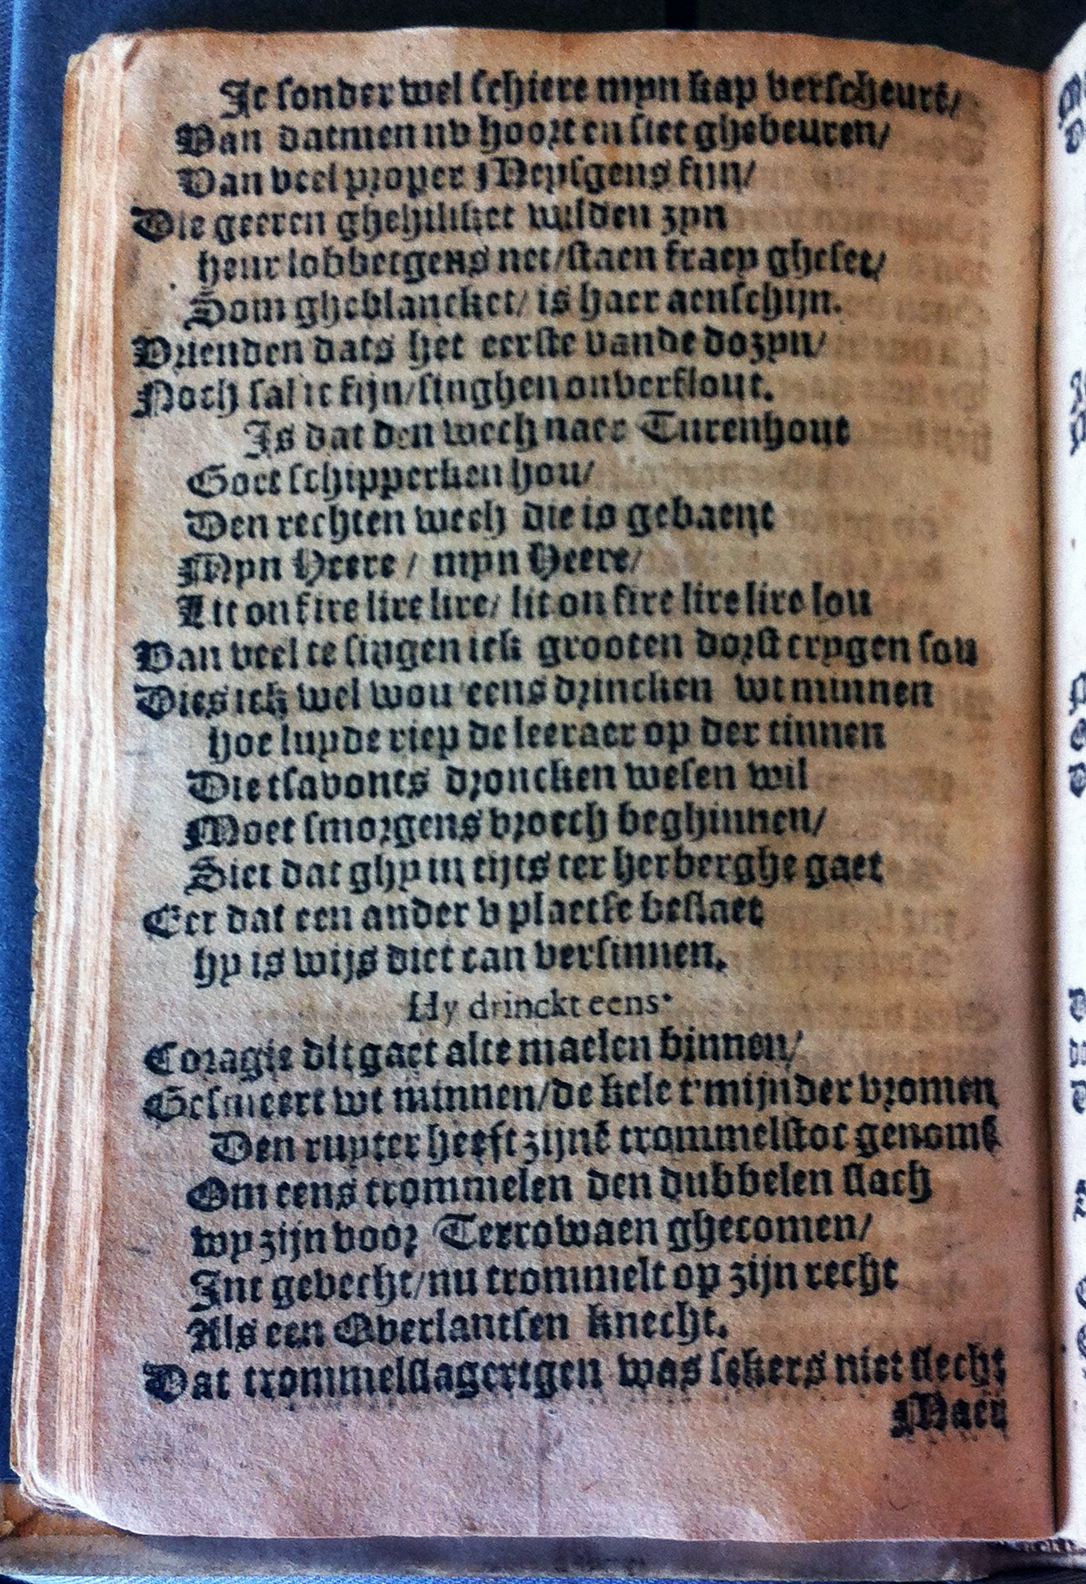 Ic sonder wel schiere myn kap verscheurē/
Van datmen nv hoort en siet ghebeuren/
Van veel proper Meysgens fijn/
Die geeren ghehilijket wilden zyn
heur lobbetgens net/staen fraey gheset/
Som gheblancket/ is haer aenschijn.
Vrienden dats het eerste vande dozyn/
Noch sal ic fijn/singhen onverflout.
Is dat den wech naer Turenhout
Goet schipperken hou/
Den rechten wech die is gebaent
Myn Heere / myn Heere/
Lit on fire lire lire/ lit on fire lire lire lou
Van veel te singen ick grooten dorst crygen sou
Dies ick wel wou eens drincken wt minnen
hoe luyde riep de leeraer op der tinnen
Die tsavonts droncken wesen wil
Moet smorgens vroech beghinnen/
Siet dat ghy in tijts ter herberghe gaet
Eer dat een ander v plaetse beslaet
hy is wijs diet can versinnen.
Hy drinckt eens.
Coragie dit gaet alte maelen binnen/
Gesmeert wt minnen/de kele t'mijnder vromen
Den ruyter heeft zijnē trommelstoc genomē
Om eens trommelen den dubbelen slach
wy zijn voor Terrowaen ghecomen/
Int gevecht/nu trommelt op zijn recht
Als een Overlantsen knecht.
Dat trommelslagertgen was sekers niet slecht
Maer